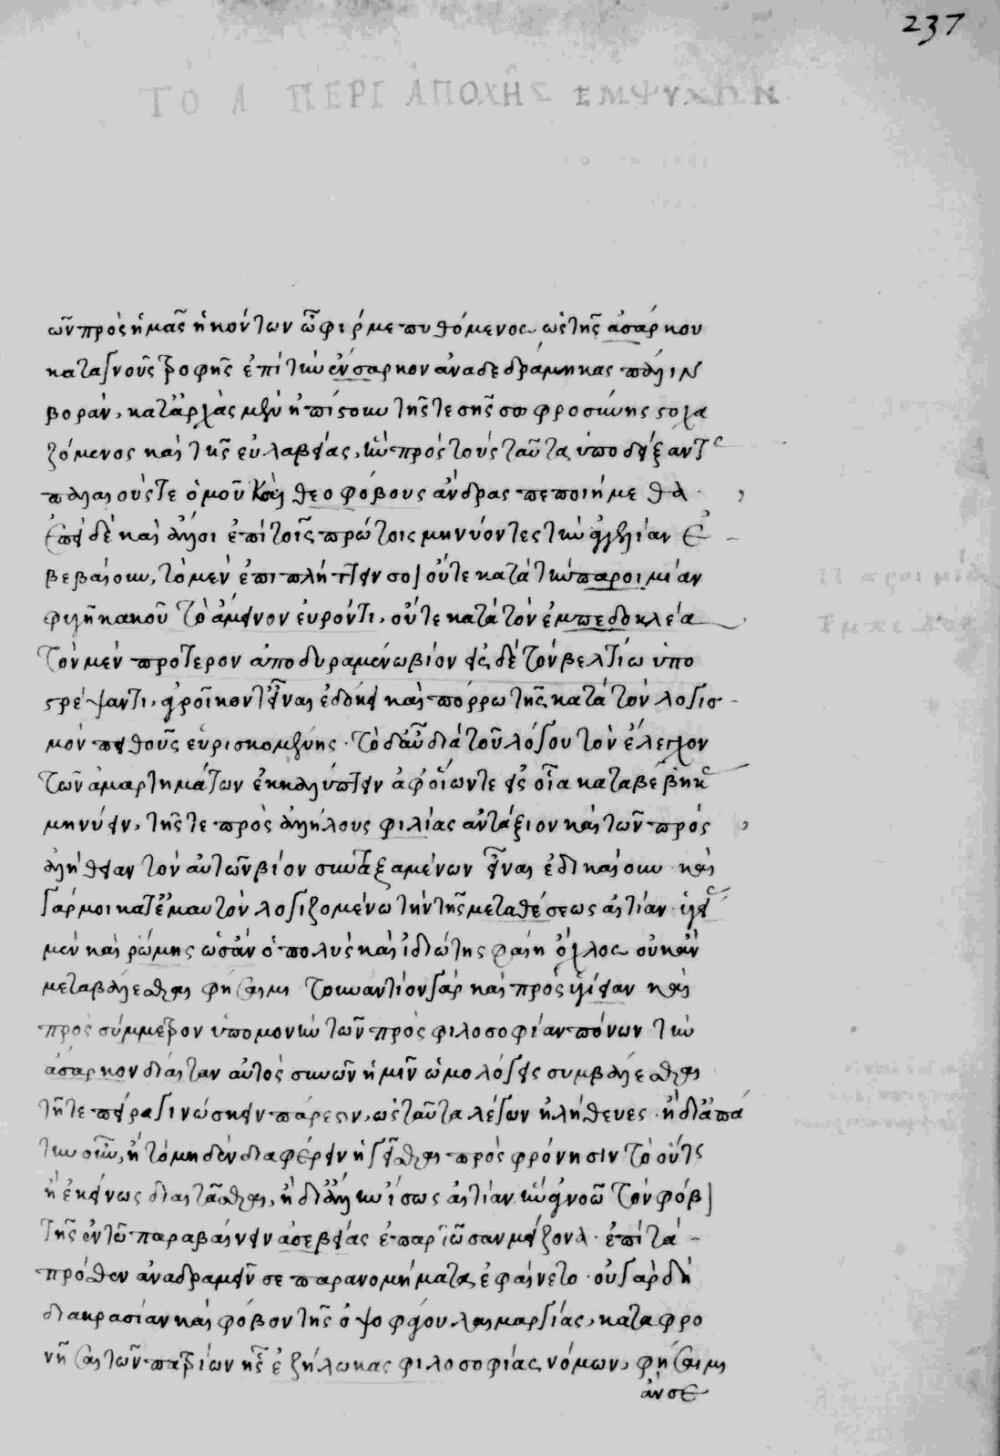 237
ΤΟ Α ΠΕΡΙ ΑΠΟΧΗΣ ΕΜΨΥΧΩΝ
ῶν πρὸς ἡμᾶς ἡκόντων ὦ φίρμε πυθόμενος ὡς τῆς ἀσάρκου
καταγνοὺς τροφῆς ἐπὶ τὴν ἔνσαρκον ἀναδεδράμηκας πάλιν
βοράν, κατ' ἀρχὰς μὲν ἠπίστουν τῆς τε σῆς σωφροσύνης στοχα
ζόμενος καὶ τῆς εὐλαβείας, ἣν πρὸς τοὺς ταῦτα ὑποδείξαντας
παλαιούς τε ὁμοῦ καὶ θεοφόβους ἄνδρας πεποιήμεθα.
ἐπεὶ δὲ καὶ ἄλλοι ἐπὶ τοῖς πρώτοις μηνύοντες τὴν ἀγγελίαν ἐ
βεβαίουν, τὸ μὲν ἐπιπλήττειν σοι οὔτε κατὰ τὴν παροιμίαν
φυγῇ κακοῦ τὸ ἄμεινον εὑρόντι, οὔτε κατὰ τὸν ἐμπεδοκλέα
τὸν μὲν πρότερον ἀποδυραμένω βίον εἰς δὲ τὸν βελτίω ὑπο
στρέψαντι, ἀγροῖκον τ' εἶναι ἐδόκει καὶ πόρρω τῆς κατὰ τὸν λογισ
μὸν πειθοῦς εὑρισκομένης. τὸ δ' αὖ διὰ τοῦ λόγου τὸν ἔλεγχον
τῶν ἁμαρτημάτων ἐκκαλύπτειν ἀφ' οἵων τε εἰς οἷα καταβέβηκας
μηνύειν, τῆς τε πρὸς ἀλλήλους φιλίας ἀντάξιον καὶ τῶν πρὸς
ἀλήθειαν τὸν αὑτῶν βίον συνταξαμένων εἶναι ἐδικαίουν. καὶ
γάρ μοι κατ' ἐμαυτὸν λογιζομένω τὴν τῆς μεταθέσεως αἰτίαν ὑγείας
μὲν καὶ ῥώμης ὡς ἂν ὁ πολὺς καὶ ἰδιώτης φαίη ὄχλος οὐκ ἂν
μεταβαλέσθαι φήσαιμι τοὐναντίον γὰρ καὶ πρὸς ὑγίειαν καὶ
πρὸς σύμμετρον ὑπομονὴν τῶν πρὸς φιλοσοφίαν πόνων τὴν
ἄσαρκον δίαιταν αὐτὸς συνὼν ἡμῖν ὡμολόγεις συμβάλεσθαι
τῇ τε πείρα γινώσκειν πάρεστιν, ὡς ταῦτα λέγων ἠλήθευες. ἢ δι' ἀπά
την οὖν, ἢ τὸ μηδὲν διαφέρειν ἡγεῖσθαι πρὸς φρόνησιν τὸ οὕτως
ἢ ἐκείνως διαιτᾶσθαι, ἢ δι' ἄλλην ἴσως αἰτίαν ἣν ἀγνοῶ τὸν φόβον
τῆς ἐν τῶ παραβαίνειν ἀσεβείας ἐπαρτῶσαν μείζονα. ἐπὶ τὰ
πρόσθεν ἀναδραμεῖν σε παρανομήματα ἐφαίνετο. οὐ γὰρ δὴ
δι' ἀκρασίαν καὶ φόβον τῆς ὀψοφάγου λαιμαργίας, καταφρο
νῆσαι τῶν πατρίων ἧς ἐζήλωκας φιλοσοφίας νόμων, φήσαιμι
ἄν σε
Παροιμία
Εμπεδοκ